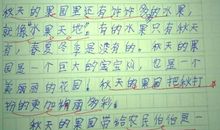 秋天的果园里还有许许多多的水果,
就像“水果天地”。有的水果只有秋天
有,春夏冬季是没有的。秋天的果
园是一个巨大的宝宝网,也是一个
美丽的花园!秋天的果园把秋打
扮的更加绚丽多彩。
秋天的果园带给农民伯伯是一